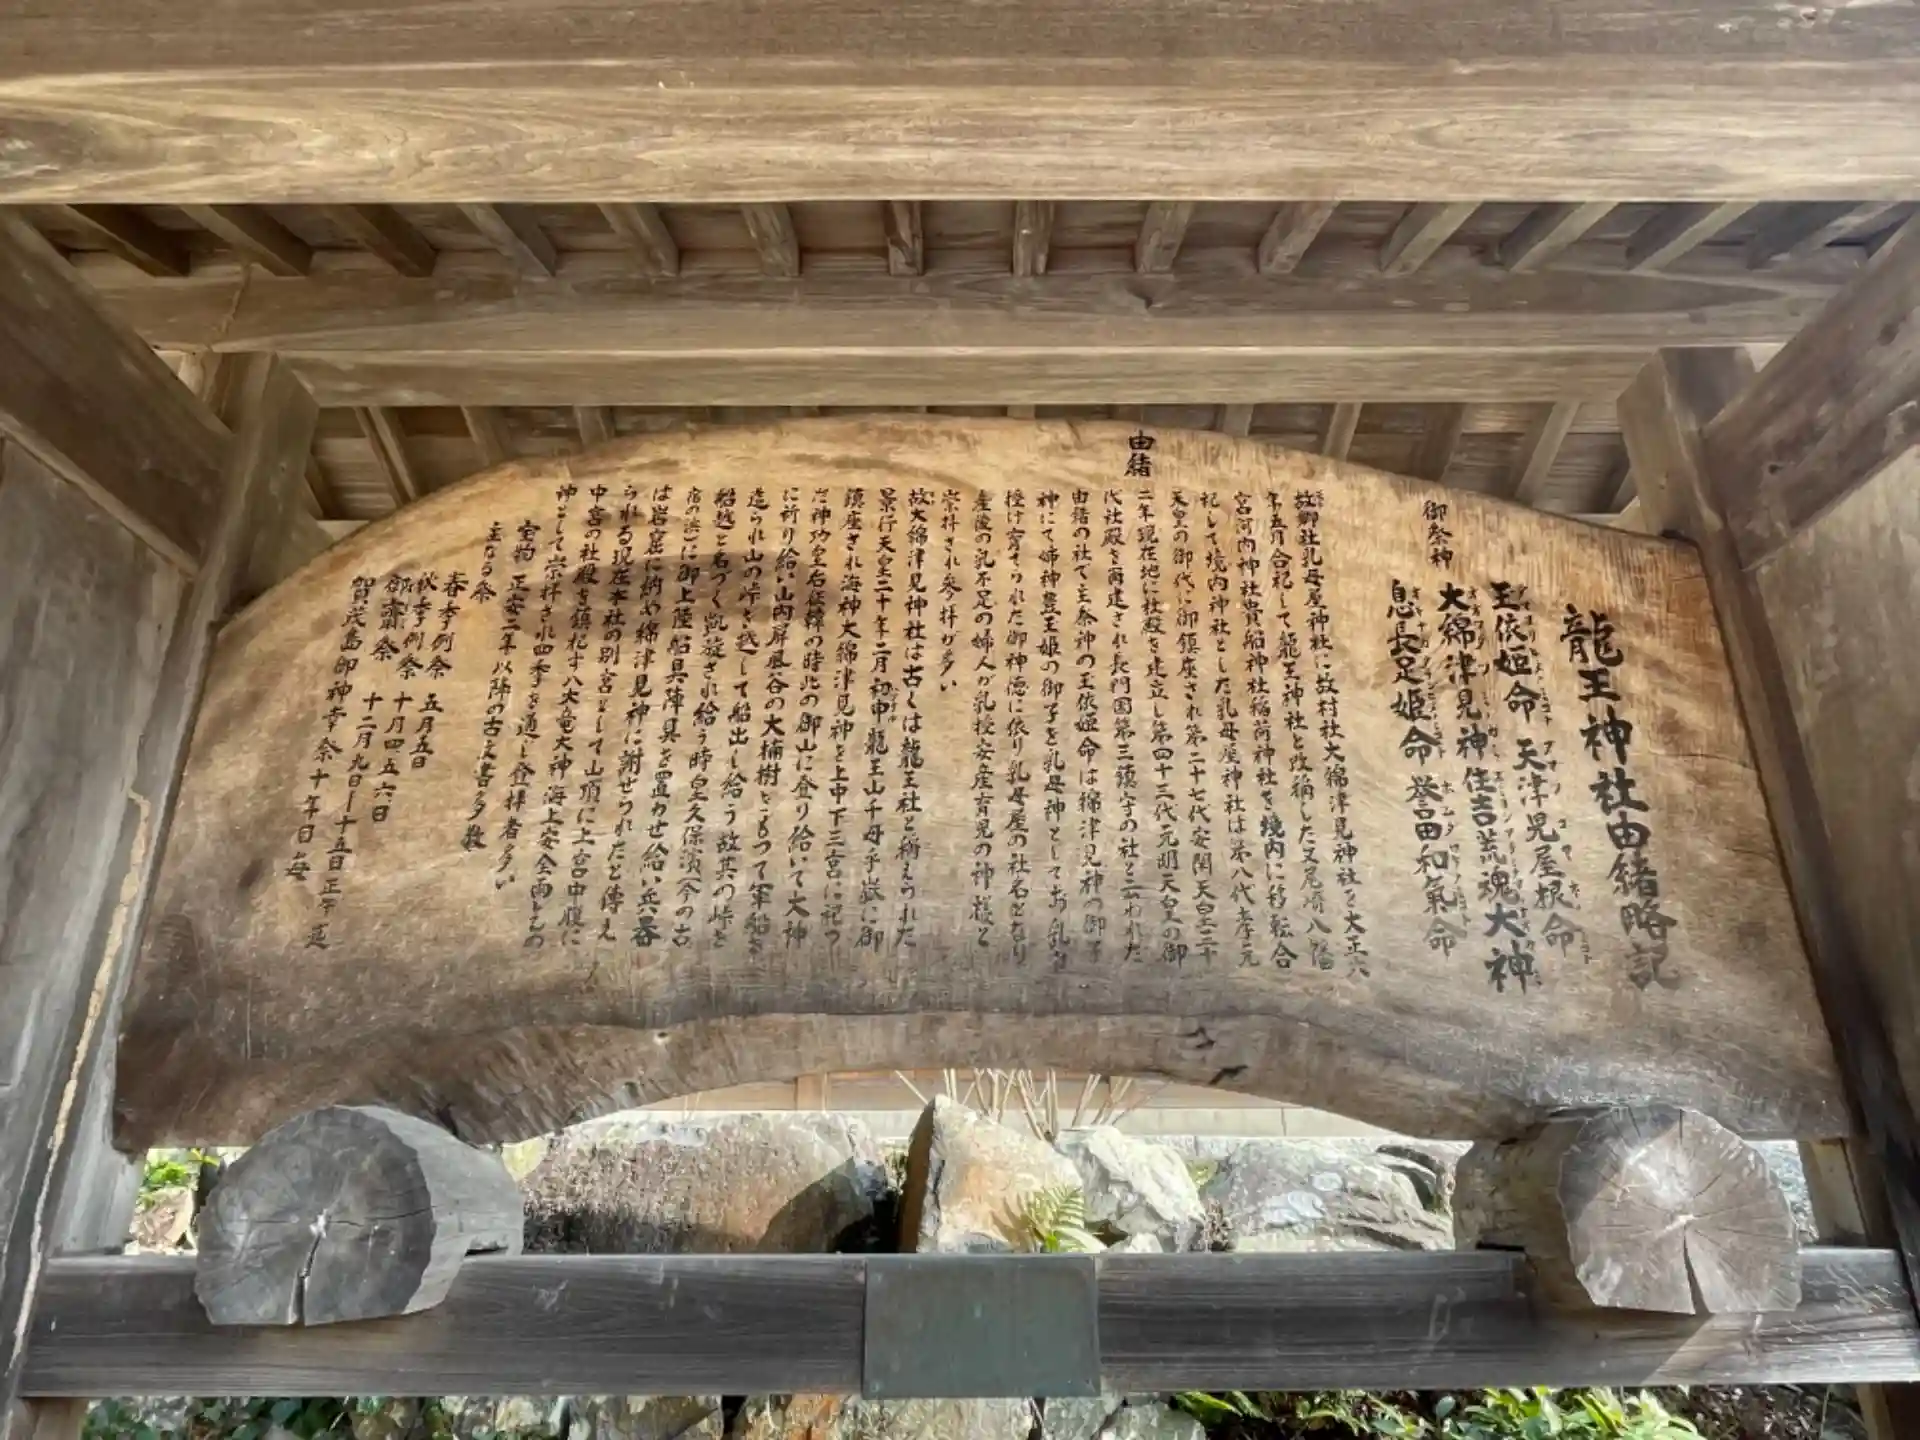 龍王神社由緒略記
御祭神
玉依姫命 天津児屋根命
大綿津見神 住吉荒魂大神
息長足姫命 誉田和氣命
由緒
故郷社乳母屋神社に故村社大綿津見神社を大正六
年五月合祀して龍王神社と改称した又尾崎八幡
宮河内神社貴船神社稲荷神社を境内に移転合
祀して境内神社とした乳母屋神社は第八代孝元
天皇の御代に御鎮座され第二十七代安閑天皇二十
二年現在地に社殿を建立し第四十三代元明天皇の御
代社殿を再建され長門国第三鎮守の社と云われた
由緒の社で主祭神の玉依姫命は綿津見神の御子
神にて姉神豊玉姫の御子を乳母神としてお乳を
授け育てられた御神徳に依り乳母屋の社名となり
産後の乳不足の婦人が乳授安産育児の神様と
崇拝され参拝が多い
故大綿津見神社は古くは龍王社と称えられた
景行天皇二十年二月初申龍王山千母乎嶽に御
鎮座され海神大綿津見神を上中下三宮に祀っ
た神功皇后征韓の時此の御山に登り給いて大神
に祈り給い山内屏風谷の大楠樹をもつて軍船を
造られ山の峠を越して船出し給う故其の峠を
船越と名づく凱旋され給う時皇久保濱(今の古
宿の浜)に御上陸船具陣具を置かせ給い兵器
は岩窟に納め綿津見神に謝せられたと傳え
られる現在本社の別宮として山頂に上宮中腹に
中宮の社殿を鎮祀す八大竜大神海上安全雨乞の
神として崇拝され四季を通し登拝者多い
宝物 正安二年以降の古文書多数
主なる祭
春季例祭 五月五日
秋季例祭 十月四五六日
御斎祭 十二月九日―十五日正午迄
賀茂島御神幸祭 十年目毎